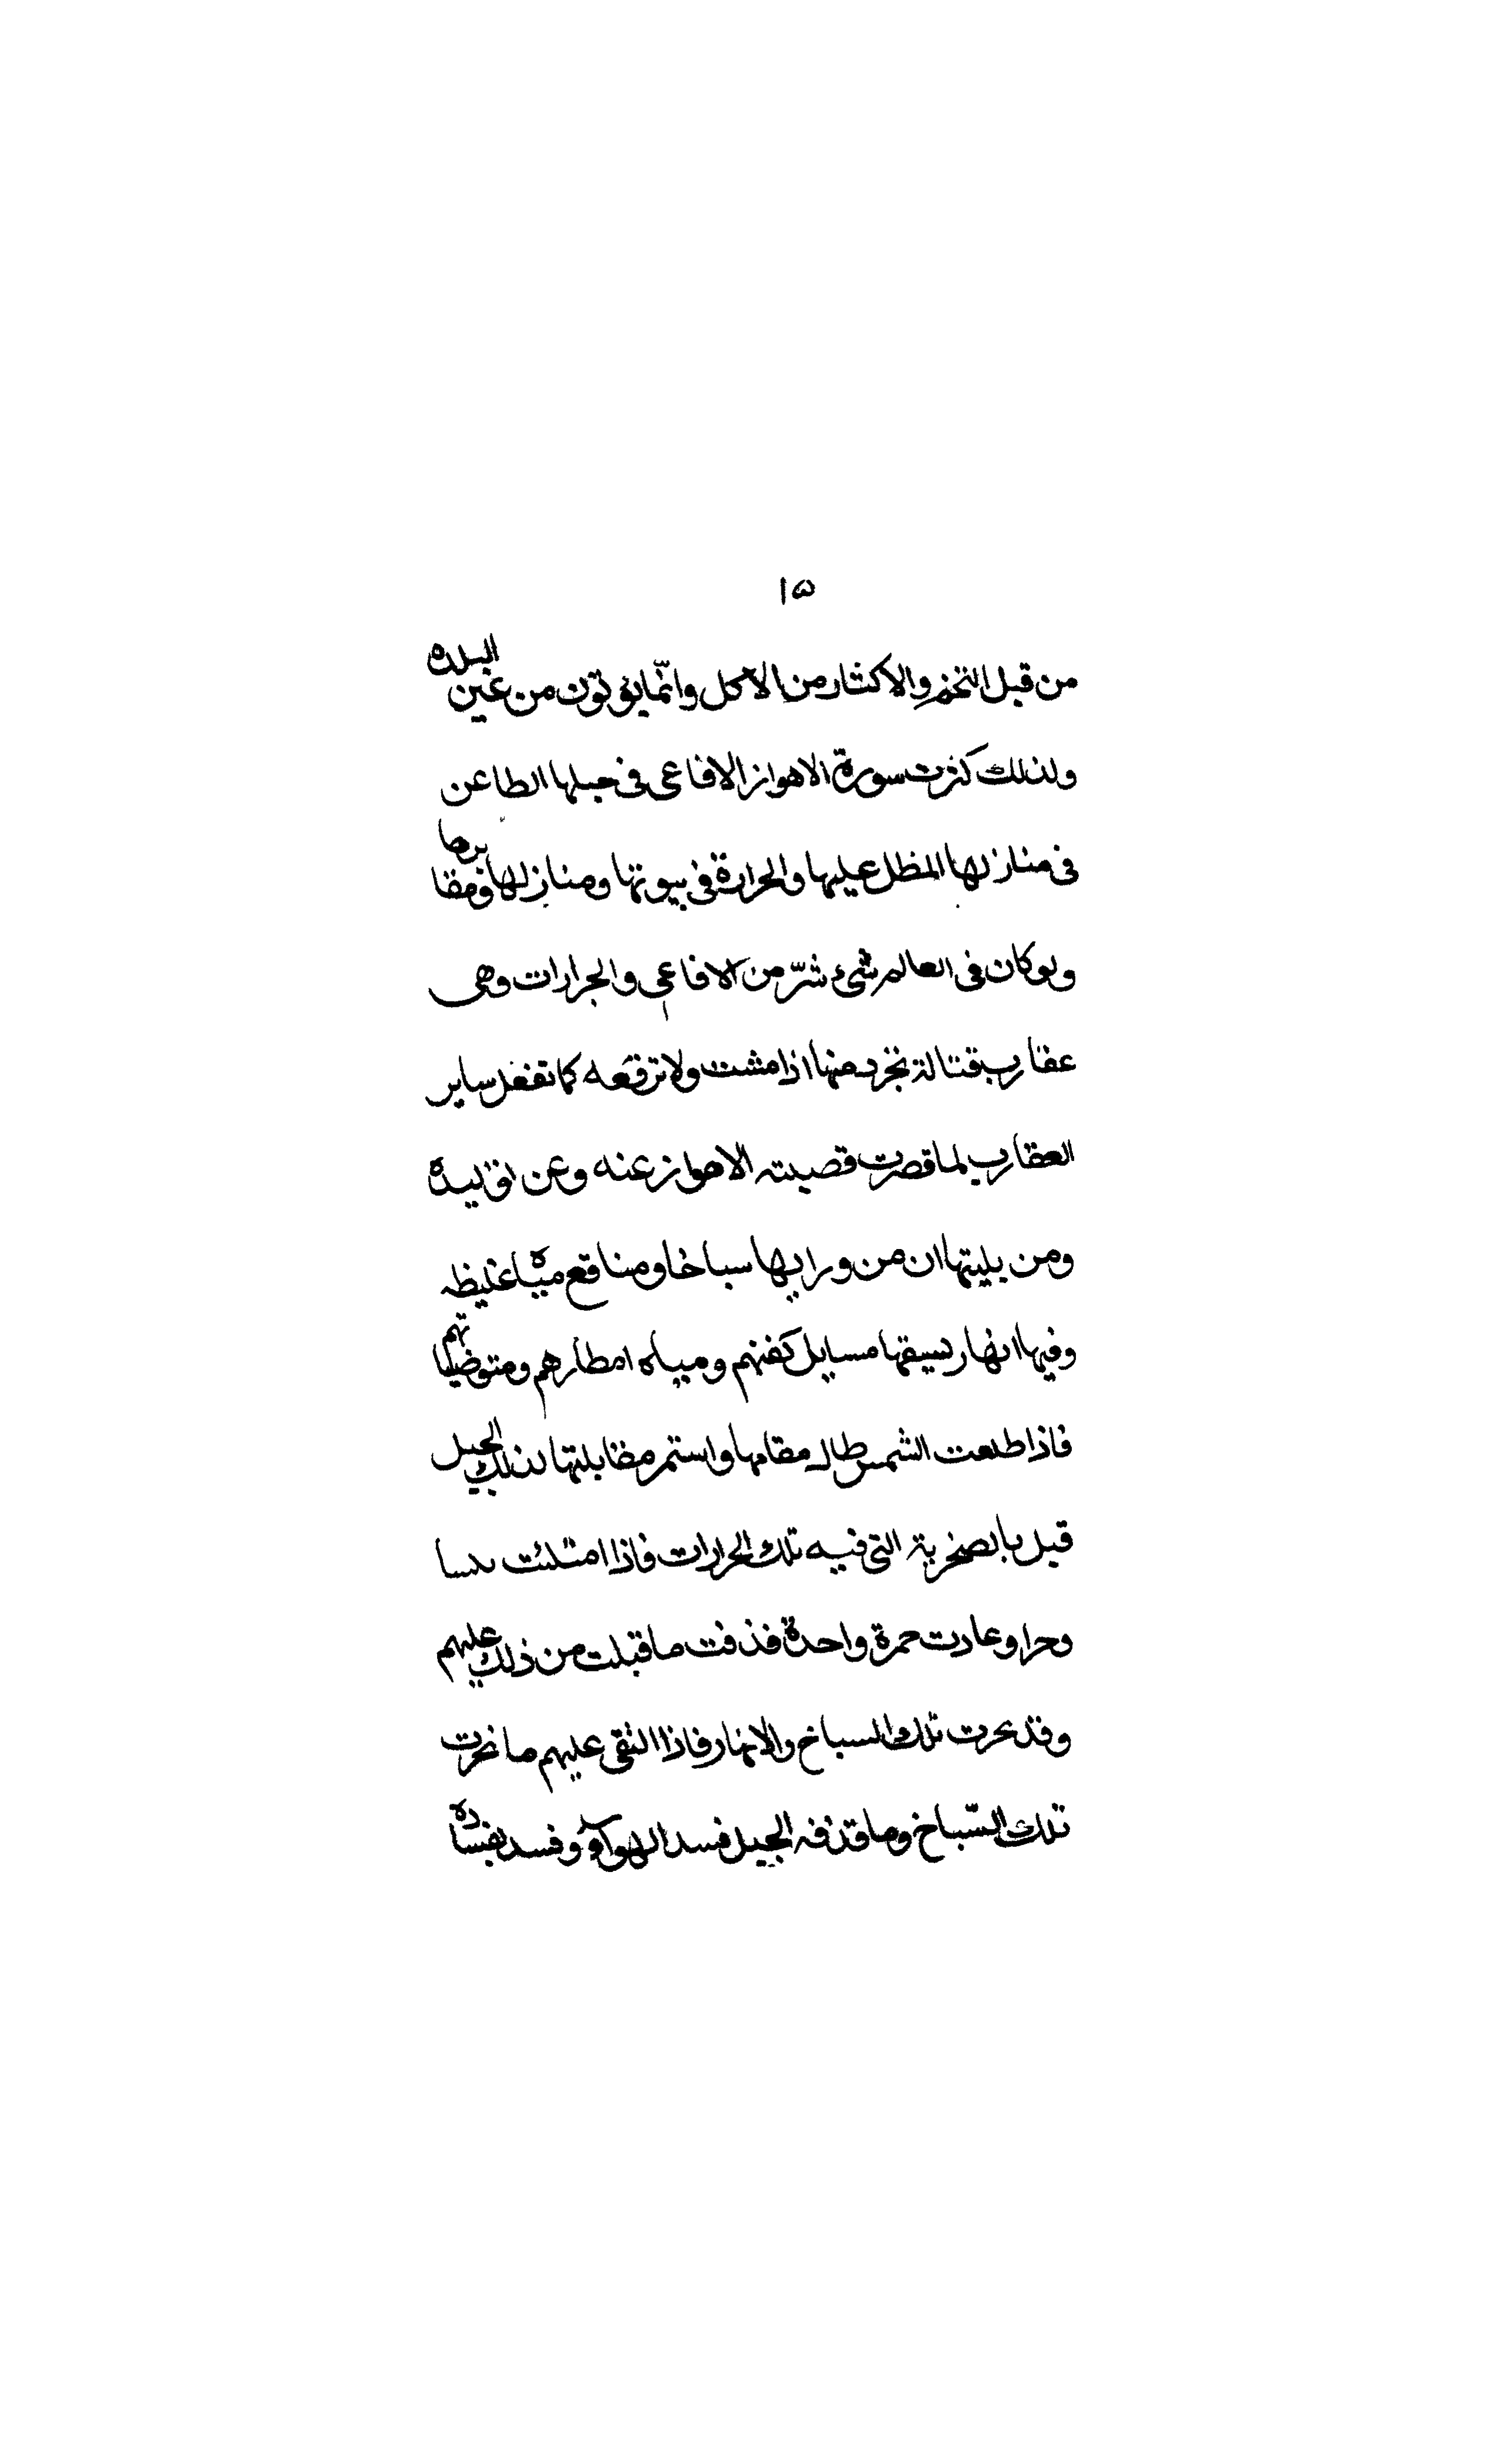 ١٥
من قبل التخم والاكثار من الاكل وانّما يؤتون من عين البلده
ولذلك كثرت سورة الاهواز الافاعى فى جبلها الطاعن
فى منازلها المظل عليها والحرارة فى بيوتها ومنازلها ومقابرها
ولو كان فى العالم شىء شرّ من الافاعى والجرارات وهى
عقارب قتالة تجرد منها اذا مشت ولا ترفعه كما تفعل ساير
العقارب لما قصرت قصبته الاهواز عنه وعن توليده
ومن بليتها ان من ورايها سباخا ومناقع مياه غليظه
وفيها انهار تسيقها مسايل كفنهم ومياه امطارهم ومتوضياتهم
فاذا طلعت الشمس طال مقامها واستمر مقابلتها لذلك الجبل
قبل بالصخرية التى فيه تلك الحرارات فاذا امتلئت يبسا
وحرا وعادت حمرة واحدة قذفت ما قبلت من ذلك عليهم
وقد بحرت تلك السباخ والانهار فاذا التقى عليهم ما نحرت
تلك السّباخ وما قذفه الجبل فسد الهواء وفسد بفساده